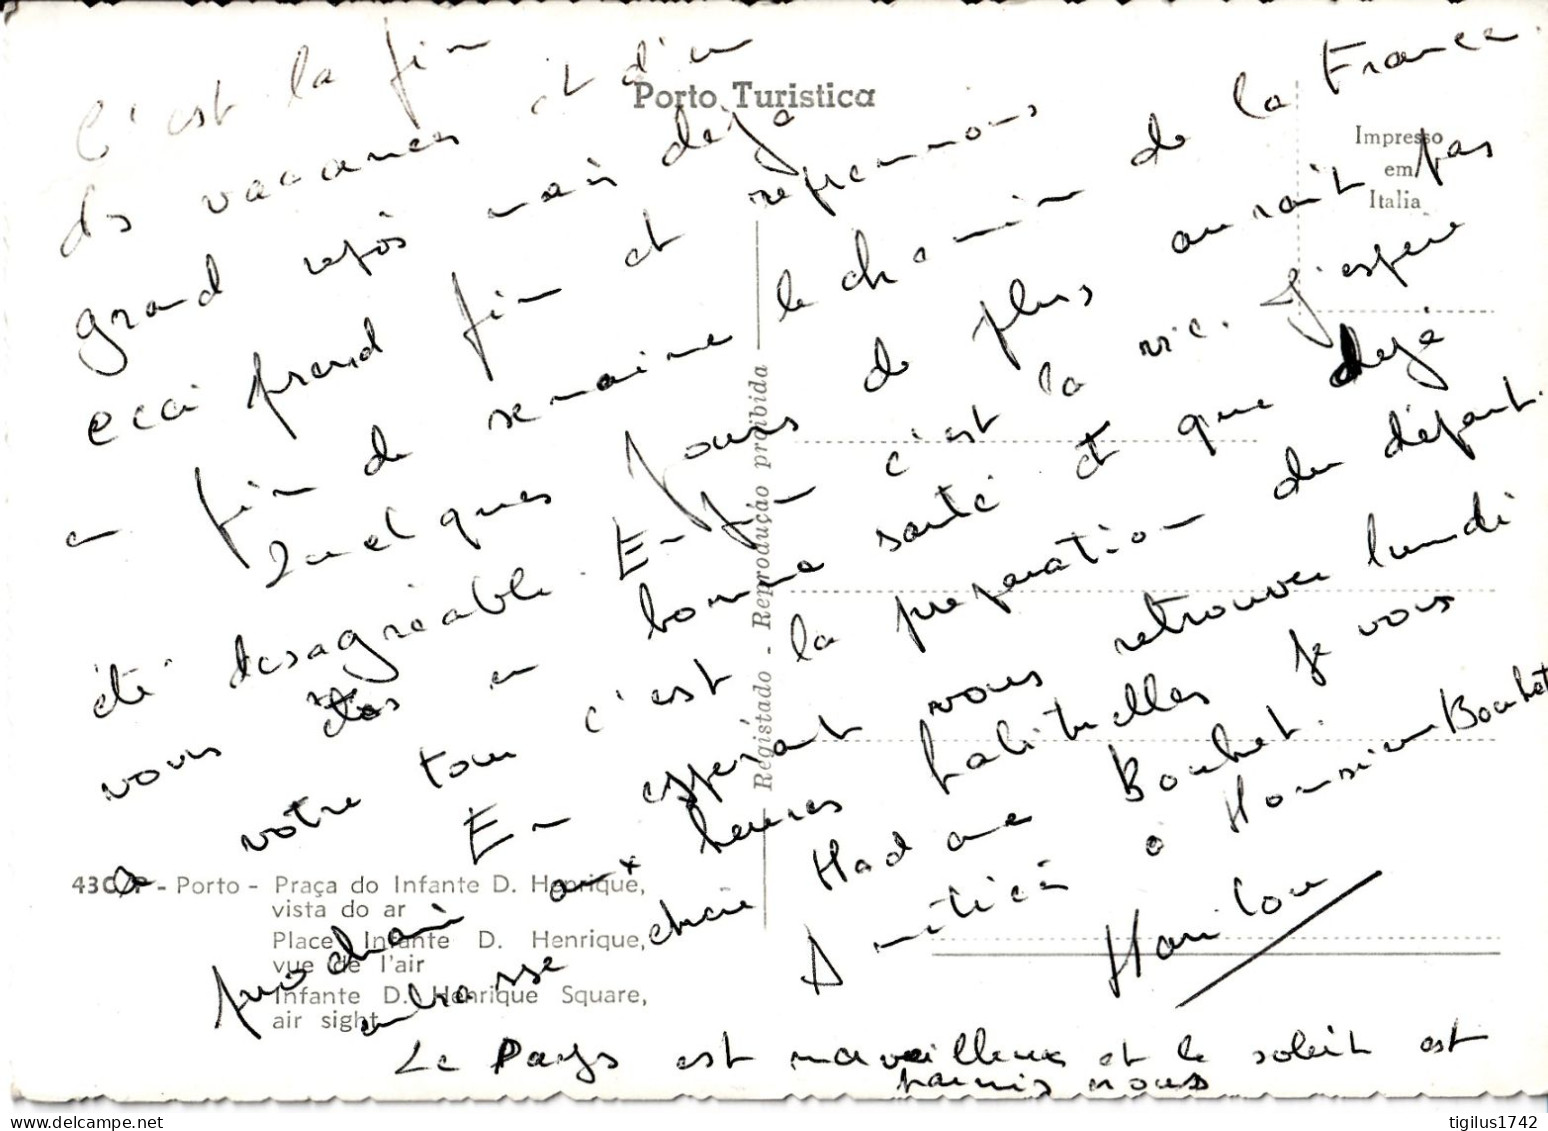 C'est la fin
des vacances et d'un
grand repos mais déjà
ceci prend fin et reprenons
en fin de semaine le chemin de la France
Quelques jours de plus aurait pas
été desagréable. Enfin c'est la vie. J'espère
vous êtes en bonne santé et que déjà
votre tour c'est la preparation du départ.
En esperant vous retrouver lundi
prochain aux heures habituelles je vous
embrasse chère Madame Bouhet.
Amitiés à Monsieur Bouhet
Marilou
Le Pays est merveilleux et le soleil est
parmis nous
Porto Turistica
Impresso
em
Italia
Registado - Reprodução proibida
43 - Porto - Praça do Infante D. Henrique,
vista do ar
Place Infante D. Henrique,
vue de l'air
Infante D. Henrique Square,
air sight
tigilus1742
delcampe.net